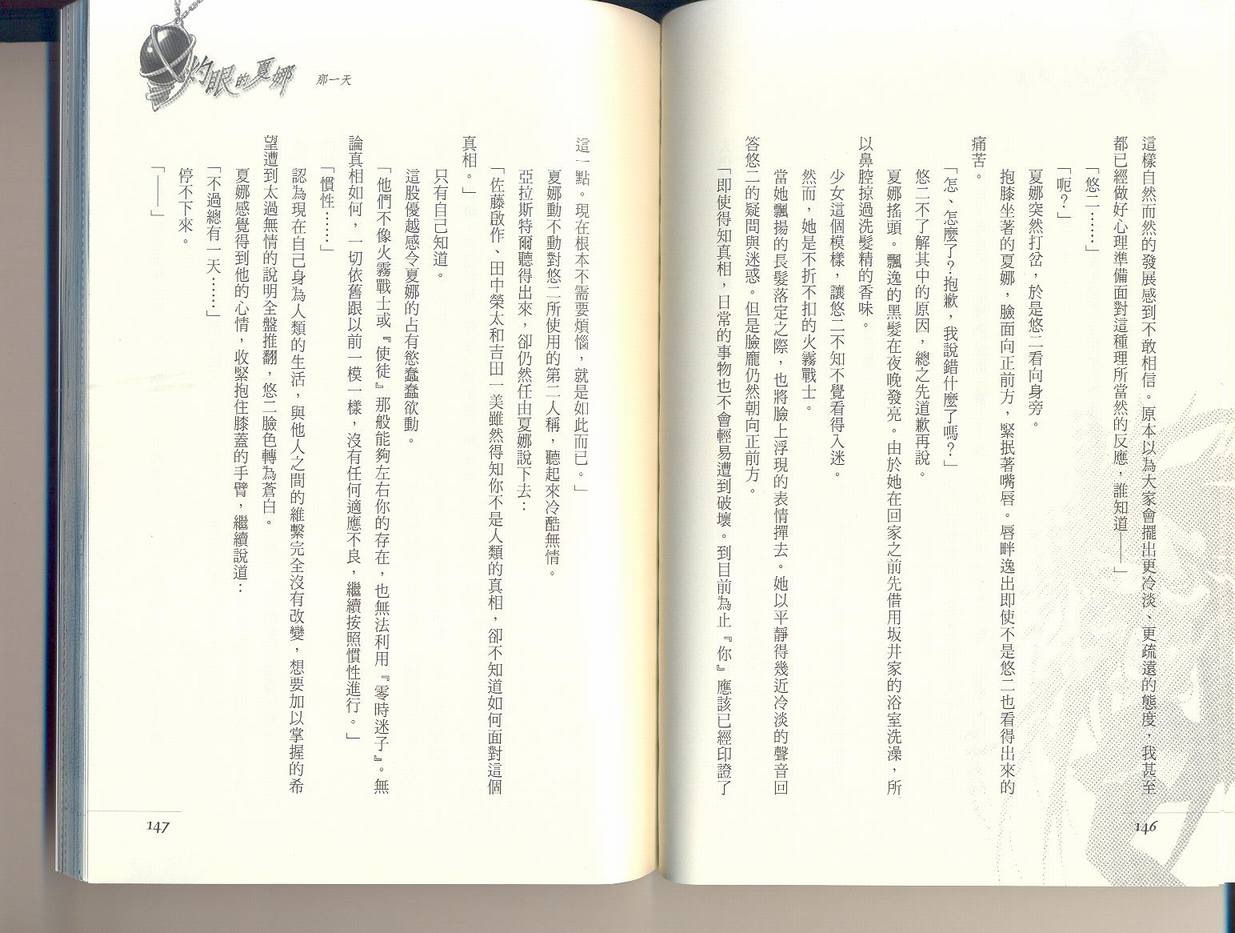 這樣自然而然的發展感到不敢相信。原本以為大家會擺出更冷淡、更疏遠的態度，我甚至
都已經做好心理準備面對這種理所當然的反應，誰知道——」
「悠二……」
「呃？」
夏娜突然打岔，於是悠二看向身旁。
抱膝坐著的夏娜，臉面向正前方，緊抿著嘴唇。唇畔逸出即使不是悠二也看得出來的
痛苦。
「怎、怎麼了？抱歉，我說錯什麼了嗎？」
悠二不了解其中的原因，總之先道歉再說。
夏娜搖頭。飄逸的黑髮在夜晚發亮。由於她在回家之前先借用坂井家的浴室洗澡，所
以鼻腔掠過洗髮精的香味。
少女這個模樣，讓悠二不知不覺看得入迷。
然而，她是不折不扣的火霧戰士。
當她飄揚的長髮落定之際，也將臉上浮現的表情揮去。她以平靜得幾近冷淡的聲音回
答悠二的疑問與迷惑。但是臉龐仍然朝向正前方。
「即使得知真相，日常的事物也不會輕易遭到破壞。到目前為止『你』應該已經印證了
146
灼眼的夏娜 那一天
這一點。現在根本不需要煩惱，就是如此而已。」
夏娜動不動對悠二所使用的第二人稱，聽起來冷酷無情。
亞拉斯特爾聽得出來，卻仍然任由夏娜說下去：
「佐藤啟作、田中榮太和吉田一美雖然得知你不是人類的真相，卻不知道如何面對這個
真相。」
只有自己知道。
這股優越感令夏娜的占有慾蠢蠢欲動。
「他們不像火霧戰士或『使徒』那般能夠左右你的存在，也無法利用『零時迷子』。無
論真相如何，一切依舊跟以前一模一樣，沒有任何適應不良，繼續按照慣性進行。」
「慣性……」
認為現在自己身為人類的生活，與他人之間的維繫完全沒有改變，想要加以掌握的希
望遭到太過無情的說明全盤推翻，悠二臉色轉為蒼白。
夏娜感覺得到他的心情，收緊抱住膝蓋的手臂，繼續說道：
「不過總有一天……」
停不下來。
「——」
147